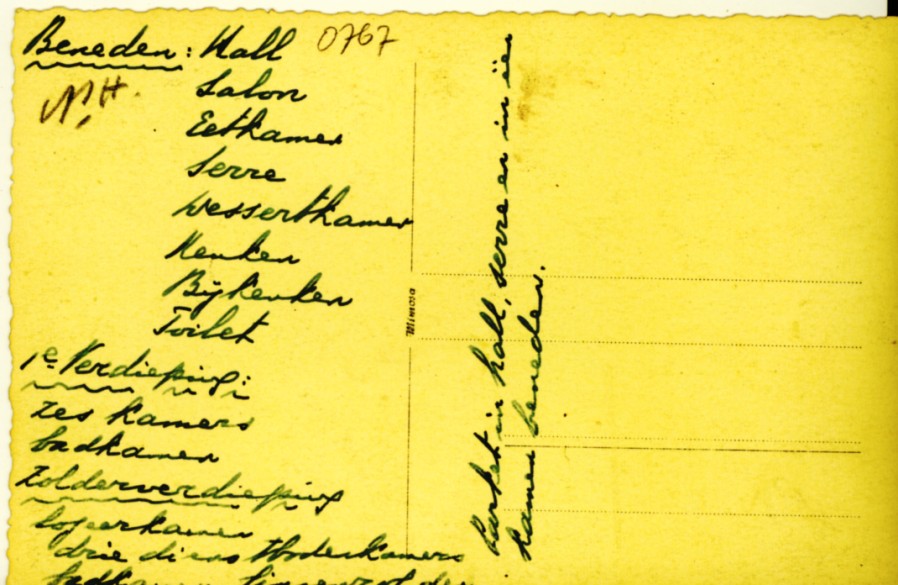 Beneden: Hall 0767
N.H.
Salon
Eetkamer
Serre
Dessertkamer
Keuken
Bijkeuken
Toilet
1e Verdieping:
zes kamers
badkamer
Zolderverdieping
Logeerkamer
drie dienstbodenkamers
badkamer linnenzolder
Mimosa
Parket in hall, serre en in één
kamer beneden.